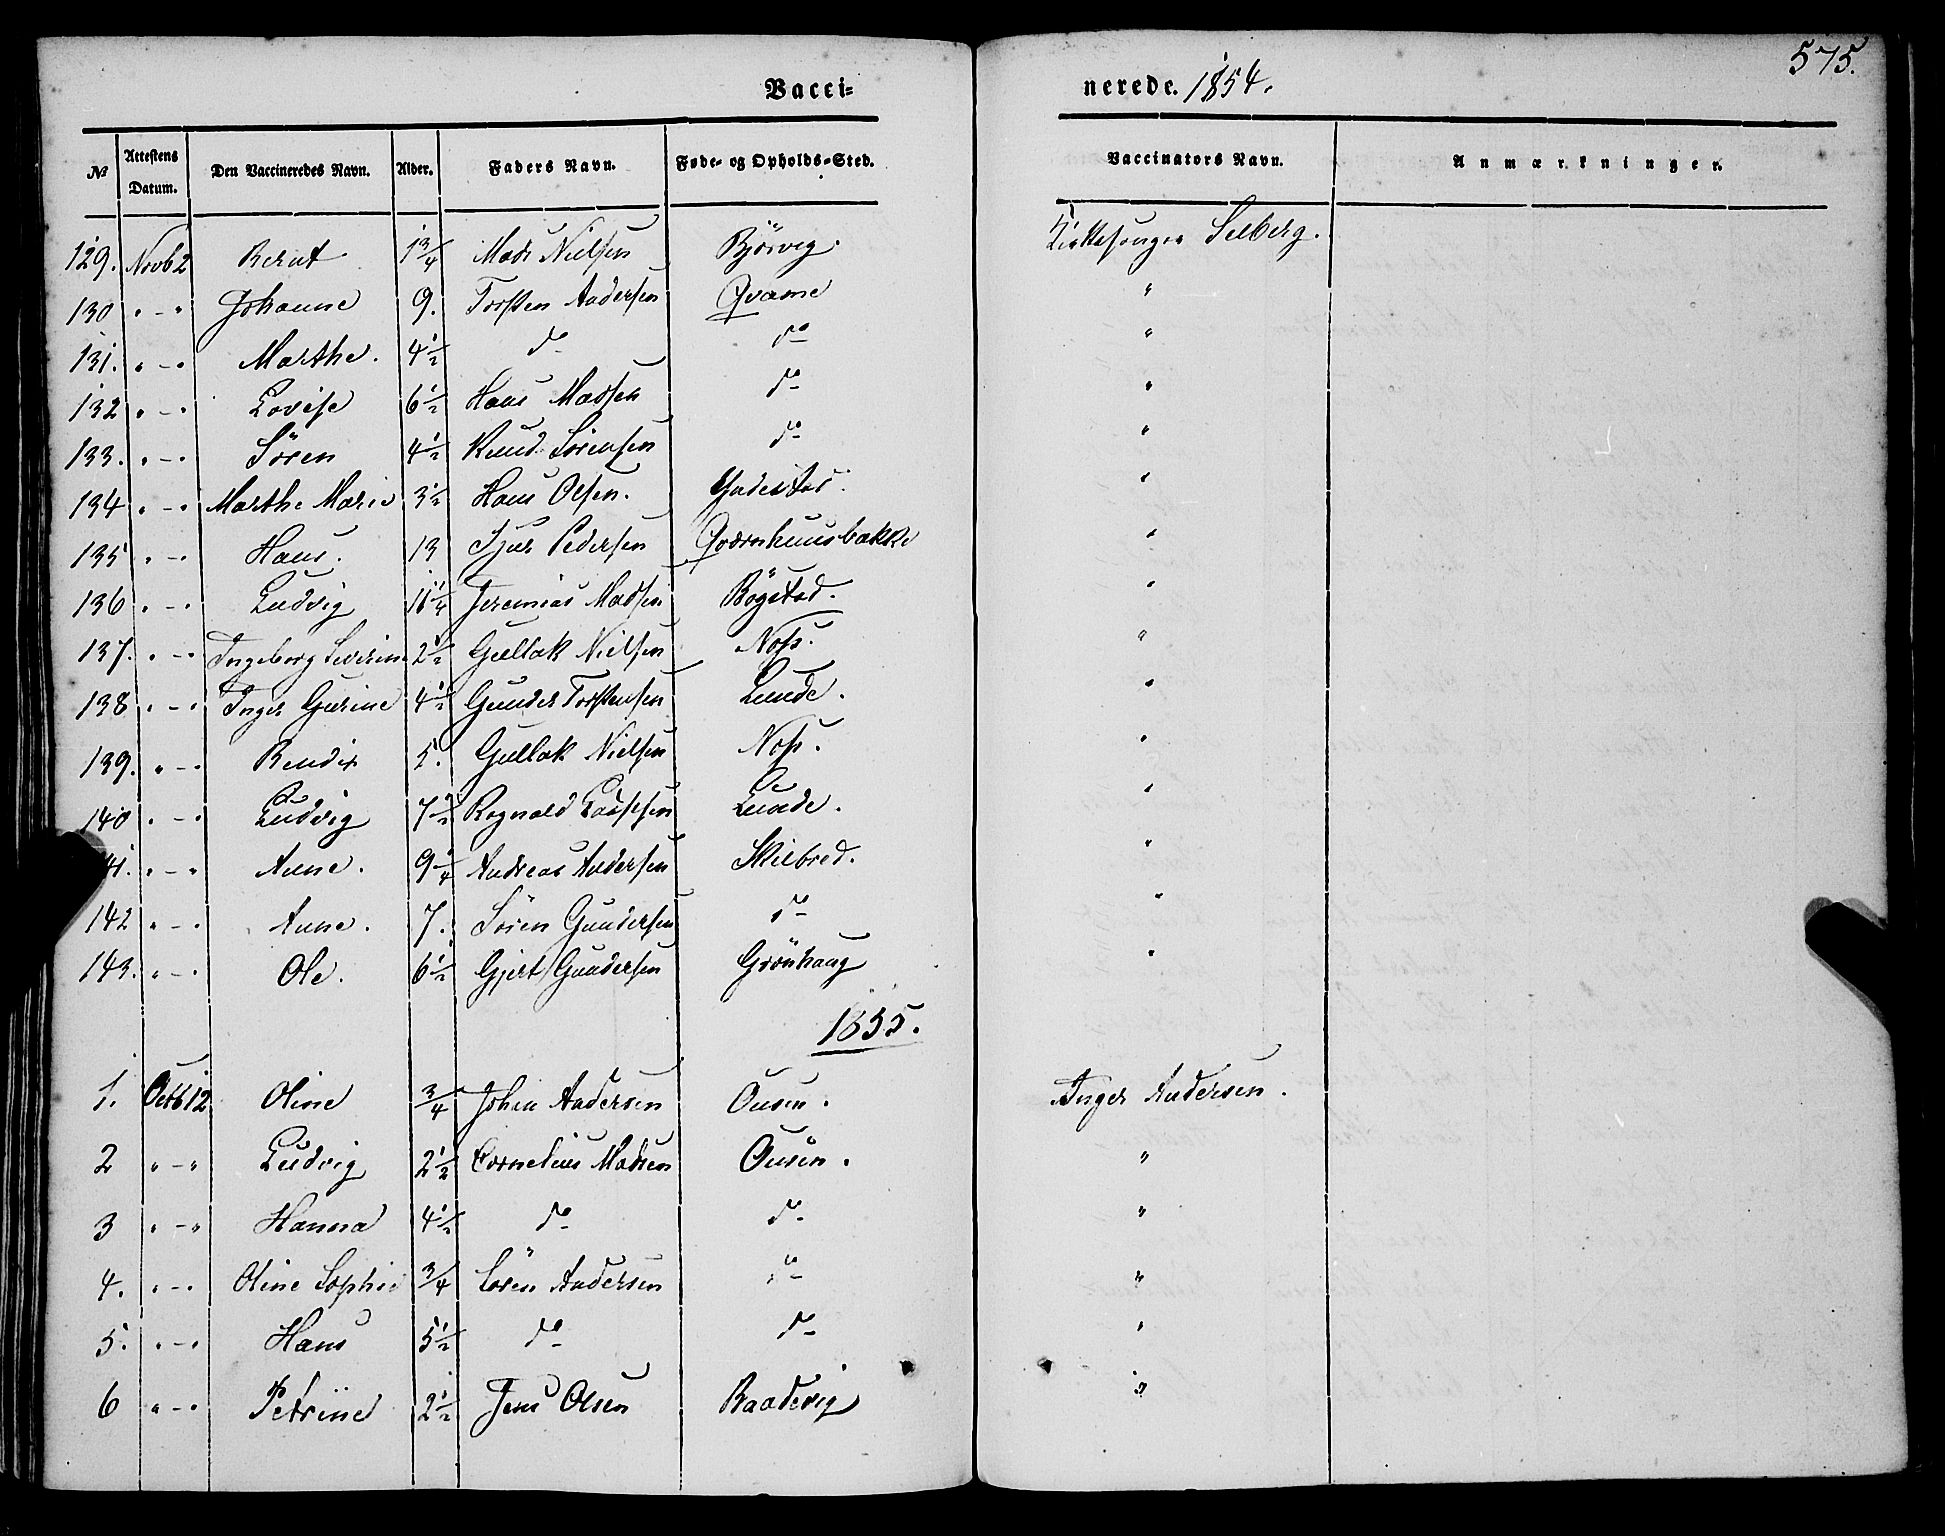 575.
Vacci- nerede. 1854.
№ Attestens Datum. Den Vaccineredes Navn. Alder. Faders Navn. Føde- og Opholds-Sted. Vaccinators Navn. Anmærkninger.
129. Novb 2 Berut 1 3/4 Mads Nielsen Bjørvig. Kirkesanger Selberg.
130 " - " Johanne 9. Torsten Andersen Qvame "
131. " - " Marthe. 4 1/2 do do "
132 " - " Lovise 6 1/2 Hans Madsen do "
133. " - " Søren 4 1/2 Knud Sørensen do "
134 " - " Marthe Marie 3 1/2 Hans Olsen. "
135 " - " Hans. 13 Tjur Pedersen Qværnhuusbakke "
136 " - " Ludvig 11 1/4 Jeremias Madsen Bøgstad. "
137. " - " Ingeborg Severine 2 1/2 Gullak Nielsen Nøss. "
138 " - " Inger Gurine 4 1/2 Gunder Torstensen Lunde. "
139. " - " Bendix 5. Gullak Nielsen Nøss. "
140 " - " Ludvig 7 1/2 Rognald Lunde. "
41. " - " Anne. 9 1/4 Andreas Andersen Skilbred. "
142 " - " Anne. 7. Søren Gundersen do "
143. " - " Ole. 6 1/2 Gjert Gundersen Grönhaug "
1855.
1. Octb 12 Oline 3/4 Johan Andersen Ousen. Inger Andersen.
2 " - " Ludvig 2 1/2 Cornelius Madsen Ousen. "
3 " - " Hanna 4 1/2 do do "
4. " - " Oline Sophie 3/4 Sören Andersen do "
5. " - " Hans 5 1/2 do do "
6 " - " Petrine 2 1/2 Jens Olsen Baadevig "